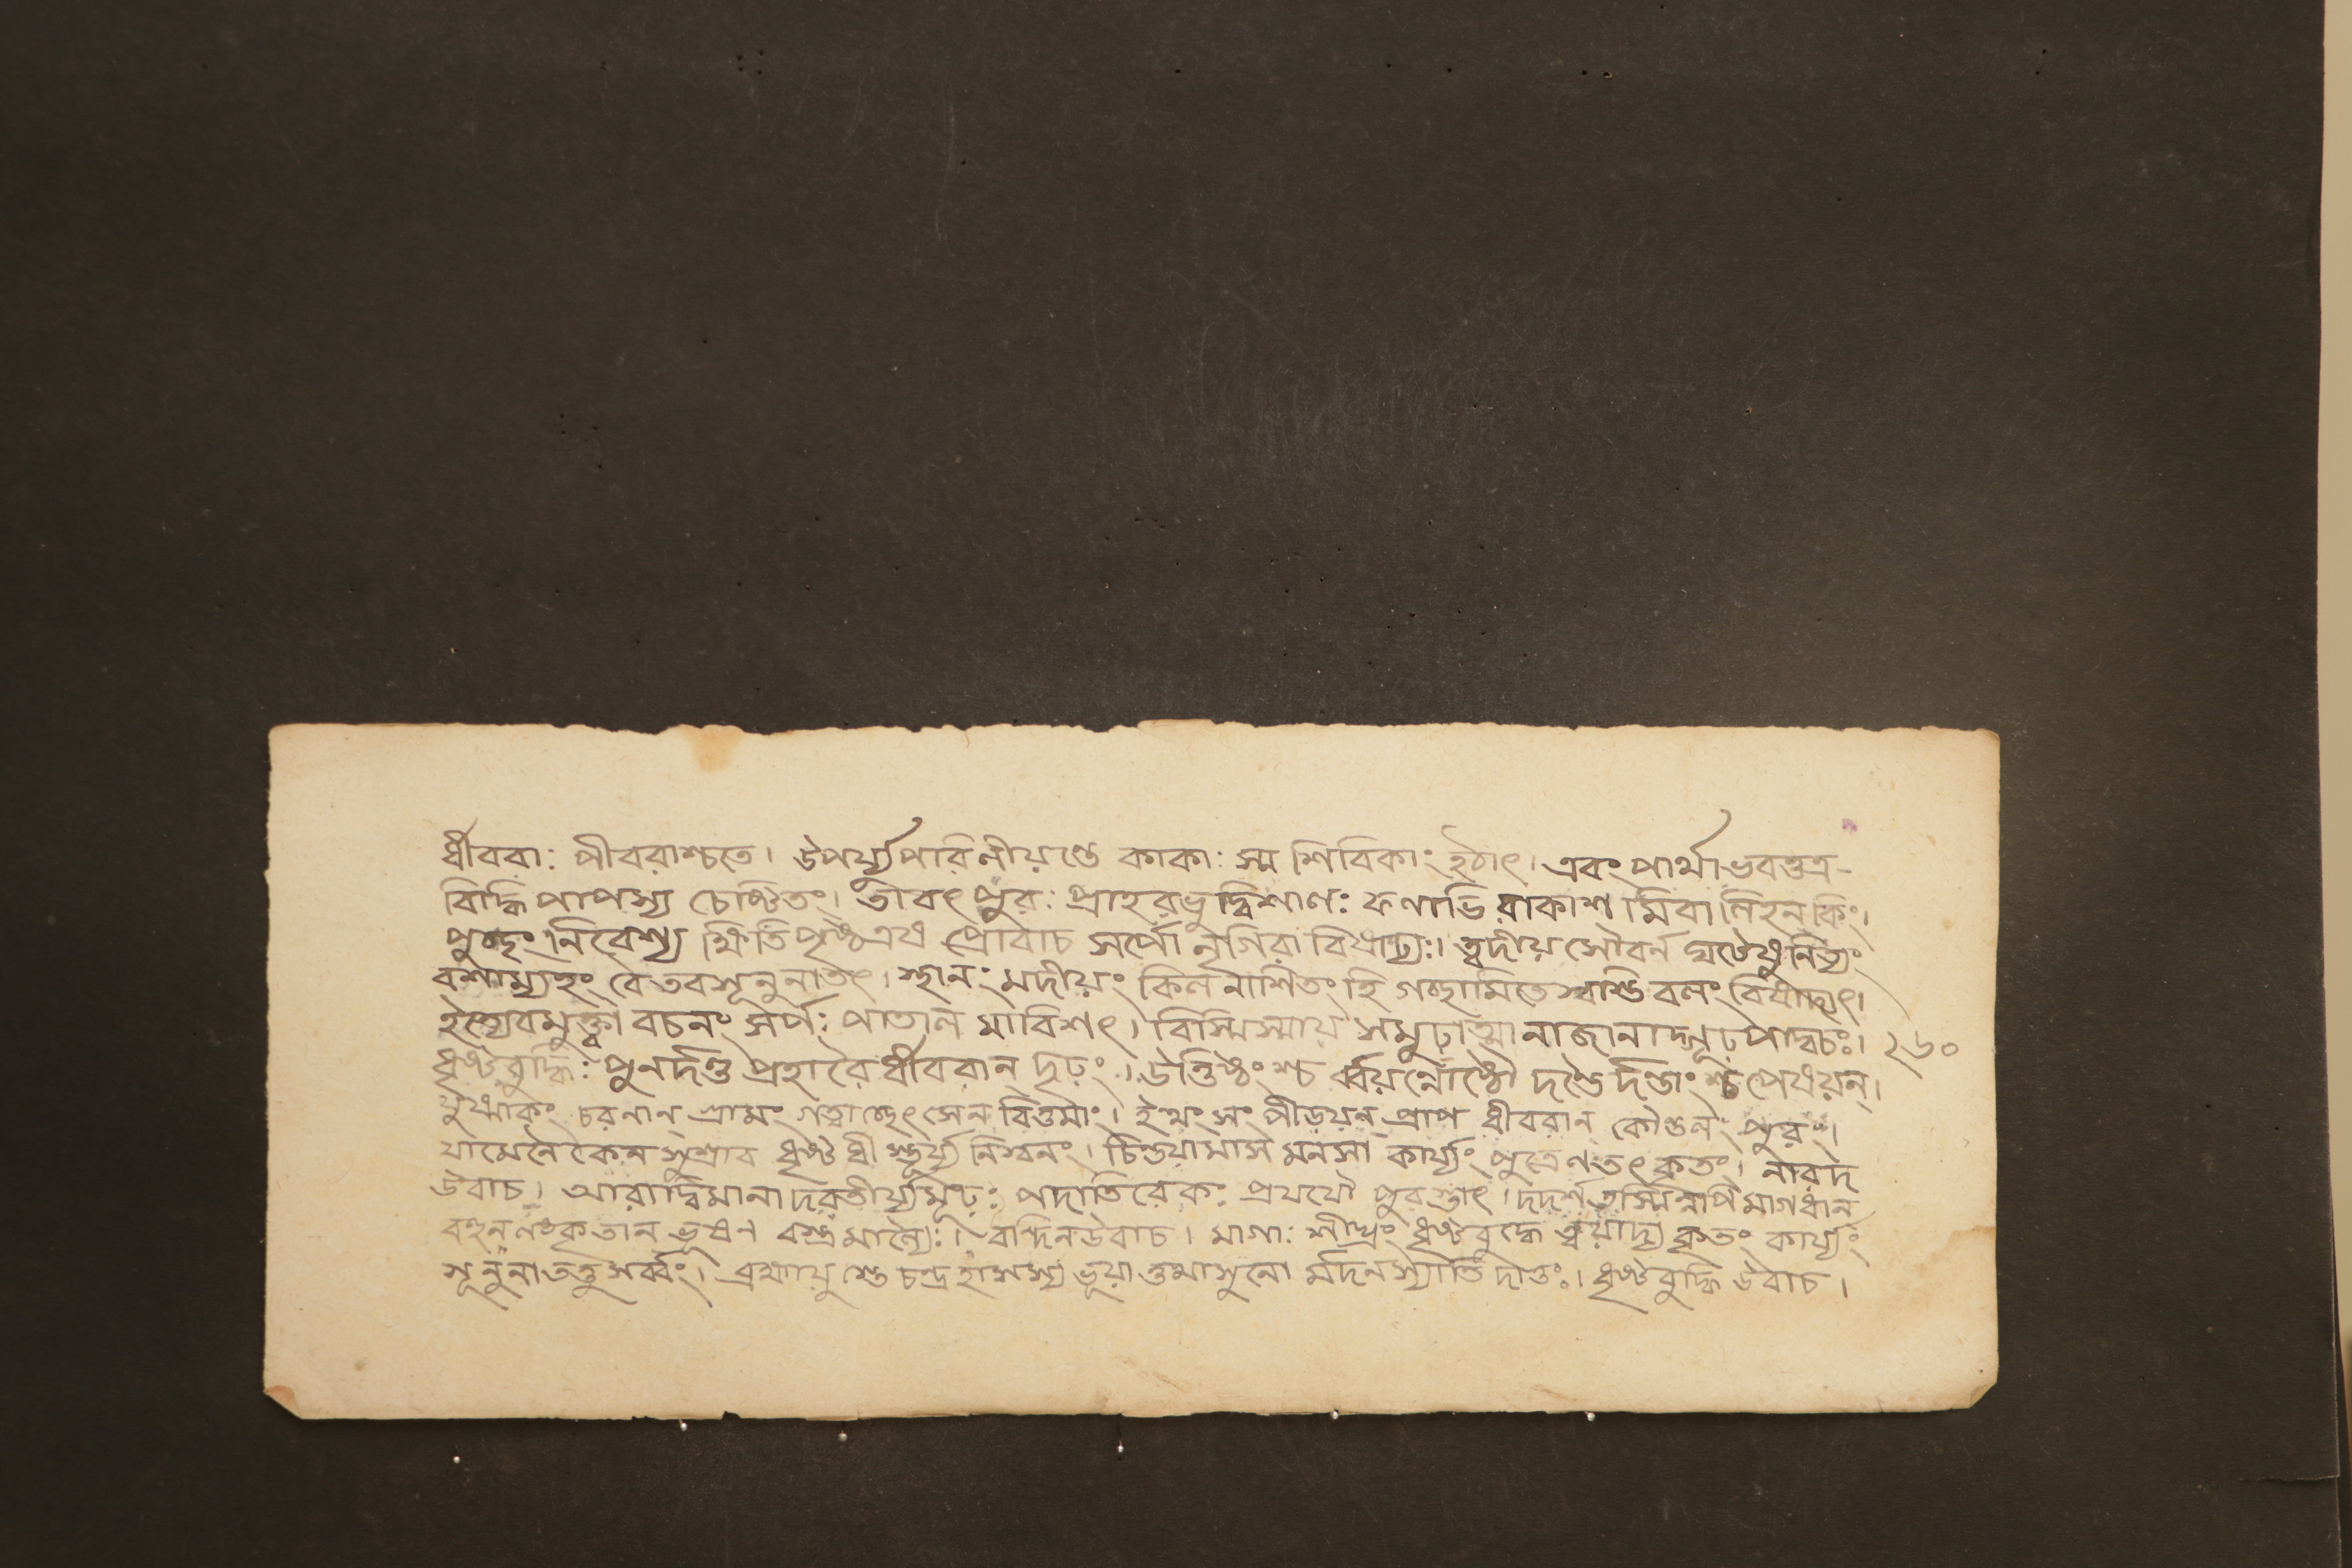 ধীবরাঃ পীবরাশ্চতে। উপর্য্যুপরিনীয়ন্তে কাকাঃ স্ম শিবিকাং হঠাৎ। এবং পার্থাভবত্তত্র-
বিদ্ধি পাপস্য চেষ্টিতং। তাবৎ পুরঃ প্রাহরভুদ্বিশালঃ ফণাভিরাকাশ মিবালিহন কিং।
পুচ্ছং নিবেশ্য ক্ষিতিপৃষ্ঠএষ প্রোবাচ সর্পো নৃগিরা বিষাঢ্যঃ। ত্বদীয় সৌবর্ন ঘটেষু নিত্যং
বশাম্যহং বেতবসূনুনাতৎ। স্থানং মদীয়ং কিল নাশিতং হি গচ্ছামিতে স্বস্তি বলং বিষাদ্যৎ।
ইত্যেবমুক্ত্বা বচনং সর্পঃ পাতাল মাবিশৎ। বিস্মিস্মায় সমুঢ়াত্মা নাজানাদ্গূঢ়পাদ্বচঃ। ২৬০
ধৃষ্টবুদ্ধিঃ পুনর্দণ্ড প্রহারৈ র্ধীবরান্ দৃঢ়ং। উত্তিষ্ঠং শ্চ র্ব্বয়ন্নোষ্ঠৌ দণ্ডৈর্দণ্ডাং শ্চ পেষয়ন্।
যুষ্মাকং চরনান্ গ্রামং গত্বা চ্ছেৎসেন বিত্তমাং। ইত্থং সং পীড়য়ন্ প্রাপ ধীবরান্ কৌন্তলং পুরং।
যামেনৈকেন সুশ্রাব ধৃষ্ট ধী স্তূর্য্য নিস্বনং। চিন্তয়ামাস মনসা কার্য্যং পুত্রেণতৎ কৃতং। নারদ
উবাচ। আরাদ্বিমানাদবতীর্য্যমূঢ়ঃ পদাতিরেকঃ প্রযযৌ পুরস্তাৎ। দদর্শ তস্মিন্নপি মাগধান্
বহূনলঙ্কৃতান ভূষণ বস্ত্রমাল্যৈঃ। বন্দিনউবাচ। মাগাঃ শীঘ্রং ধৃষ্টবুদ্ধে ত্বয়াদ্য কৃতং কার্য্যং
সূনুনা তত্তু সর্ব্বং। ব্রহ্মায়ু স্তে চন্দ্র হাসস্য ভূয়া ত্তমাসুনো র্মদনস্যাতি দাতুঃ। ধৃষ্টবুদ্ধি উবাচ।